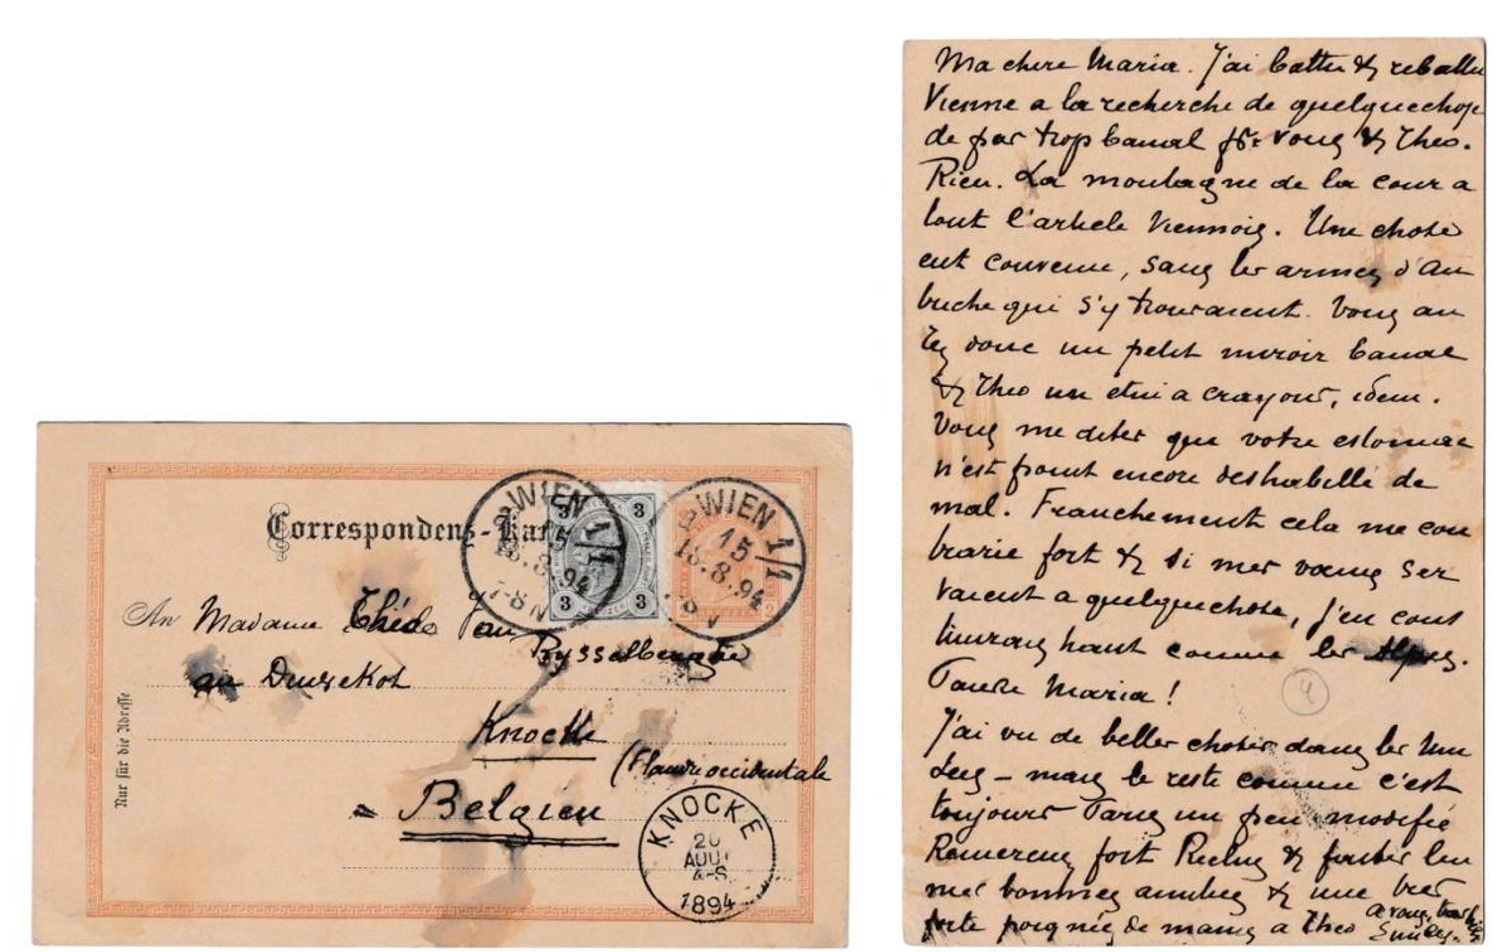 Correspondenz-Kar
An Madame Théo Van
Rysselberghe
au Dunekot
Knocke
(Flandre occidentale
Belgien
Nur für die Adresse
WIEN 1/1
15
18.8.94
7-8 N
3 3
3 3
WIEN 1/1
15
18.8.94
KNOCKE
20
AOUT
4-S
1894
Ma chere Maria. J'ai battu & rebattu
Vienne a la recherche de quelquechose
de pas trop banal pr vous & Theo.
Rien. La montagne de la cour a
tout l'article Viennois. Une chose
eut convenu, sans les armes d'Au
triche qui s'y trouvaient. Vous au
rez donc un petit miroir banal
& Theo un etui a crayons, idem.
Vous me dites que votre estomac
n'est point encore deshabillé de
mal. Franchement cela me con
trarie fort & si mes vœux ser
vaient a quelquechose, j'en cons
truirais haut comme les Alpes.
Pauvre Maria!
4
J'ai vu de belles choses dans les Mu
sées - mais le reste comme c'est
toujours Paris un peu modifié
Remerciez fort
mes bonnes & une tres
forte poignée de mains a Theo
a vous,